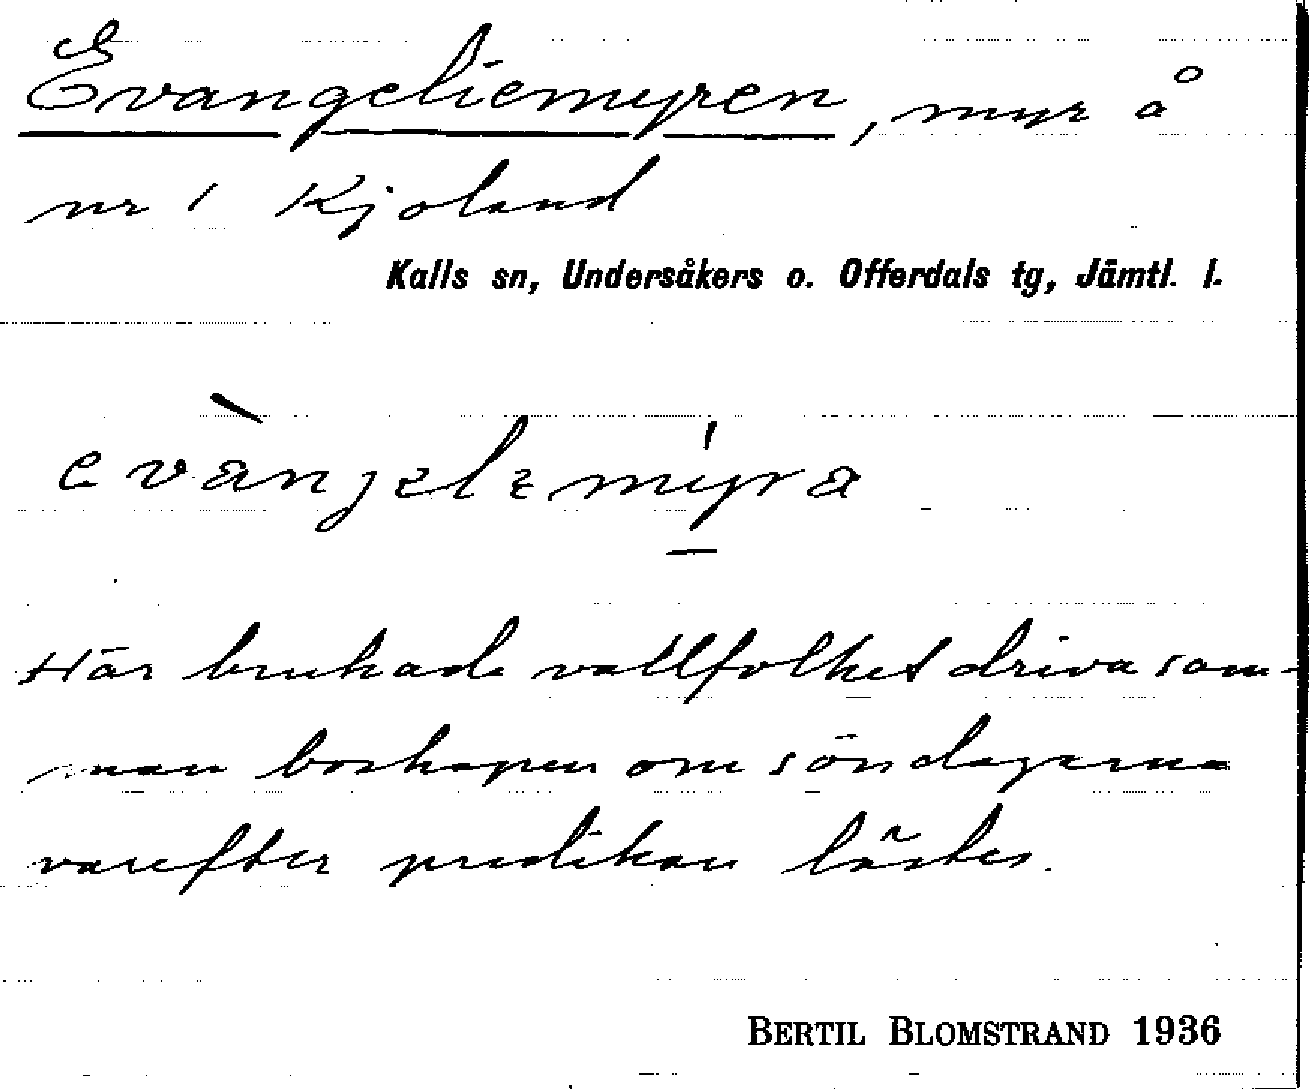 Evangeliemyren, myr å
nr 1 Kjoland
Kalls sn, Undersåkers o. Offerdals tg, Jämtl. l.
evàngelemýra
Här brukade vallfolket driva sam-
man boskapen om söndagarna
varefter predikan lästes.
BERTIL BLOMSTRAND 1936